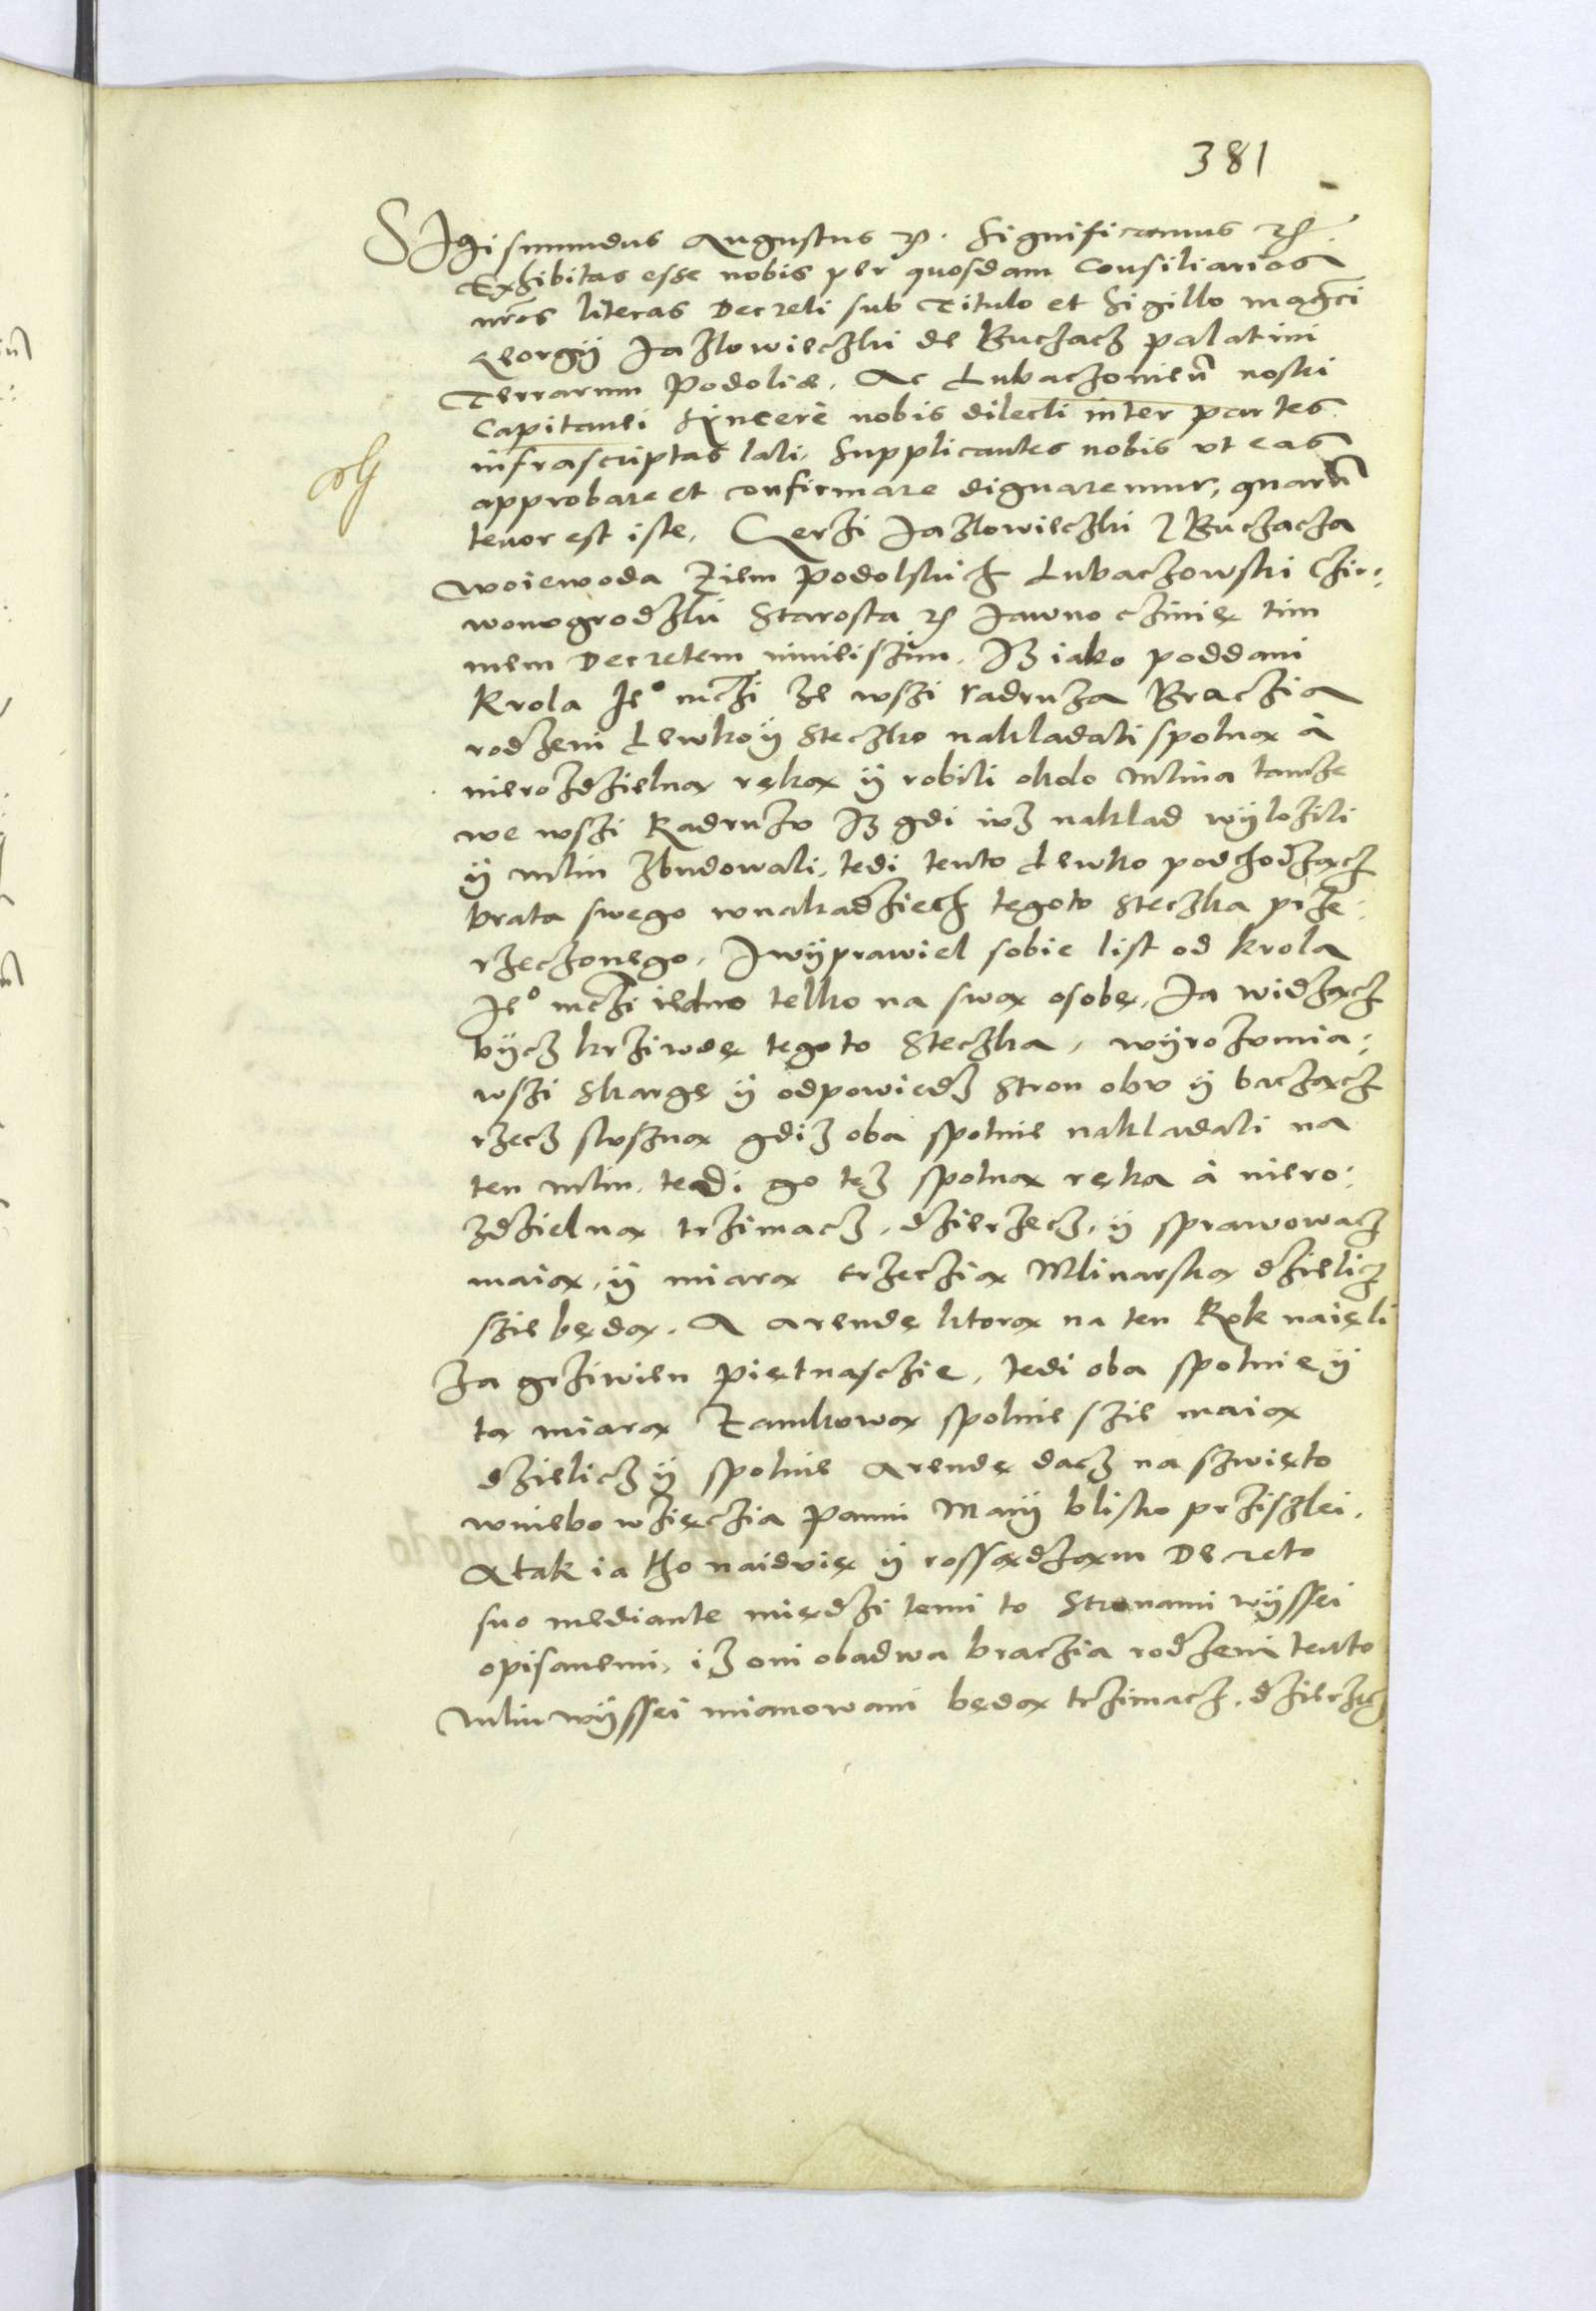 381
SIgismundus Augustus etc. Significamus etc.
Exhibitas esse nobis per quosdam Consiliarios
nros literas Decreti sub Titulo et Sigillo magci
Georgÿ Jazlowieczki de Buczacz palatini
Terrarum Podoliæ. Ac Lubaczonien nostri
Capitanei Sÿncerè nobis dilecti inter partes
infrascriptas lati. Supplicantes nobis vt eas
approbare et confirmare dignaremur, quarum
tenor est iste. Gerzi Jazlowieczki z Buczacza
woiewoda Ziem Podolskich Lubaczowski Czir:
wonogrodzki Starosta etc Jawno czinię tim
mem Decretem ninieiszim. Iz iako poddani
Krola Je° mczi ze wszi radruza Braczia
rodzeni Lewko ÿ Steczko nakladali spolną à
nierozdzielną ręką ÿ robili okolo mlina tamze
we wszi Radruzu Iz gdi iuz naklad wÿlozili
ÿ mlin zbudowali, tedi tento Lewko podchodząch
brata swego wnakadziech tegoto Steczka prze:
rzeczonego. I wÿprawiel sobie list od krola
Je° mczi iedno telko na swą osobę. Ja widząch
bÿcz krziwdę tegoto Steczka, wÿrozumia:
wszi Skargę ÿ odpowiedz Stron obu ÿ baczącz
rzecz sluszną gdiz oba spolnie nakladali na
ten mlin. tedi go tez spolną ręka à niero:
zdzielną trzimacz, dzierzecz, ÿ sprawowacz
maią, ÿ miarą trzeczią Mlinarską dzielicz
szie będą. A Arendę ktorą na ten Rok naięli
za grziwien piętnasczie, tedi oba spolnie ÿ
tą miarą Zamkową spolnie szie maią
dzielicz ÿ spolnie Arendę dacz na szwięto
wniebowzięczia Panni Marÿ blisko prziszlei.
A tak ia tho naiduię ÿ rossądzam Decreto
suo mediante międzi temi to Stronami wÿssei
opisanemi, iz oni obadwa braczia rodzeni tento
mlin wÿssei mianowani będą trzimacz, dzierzecz